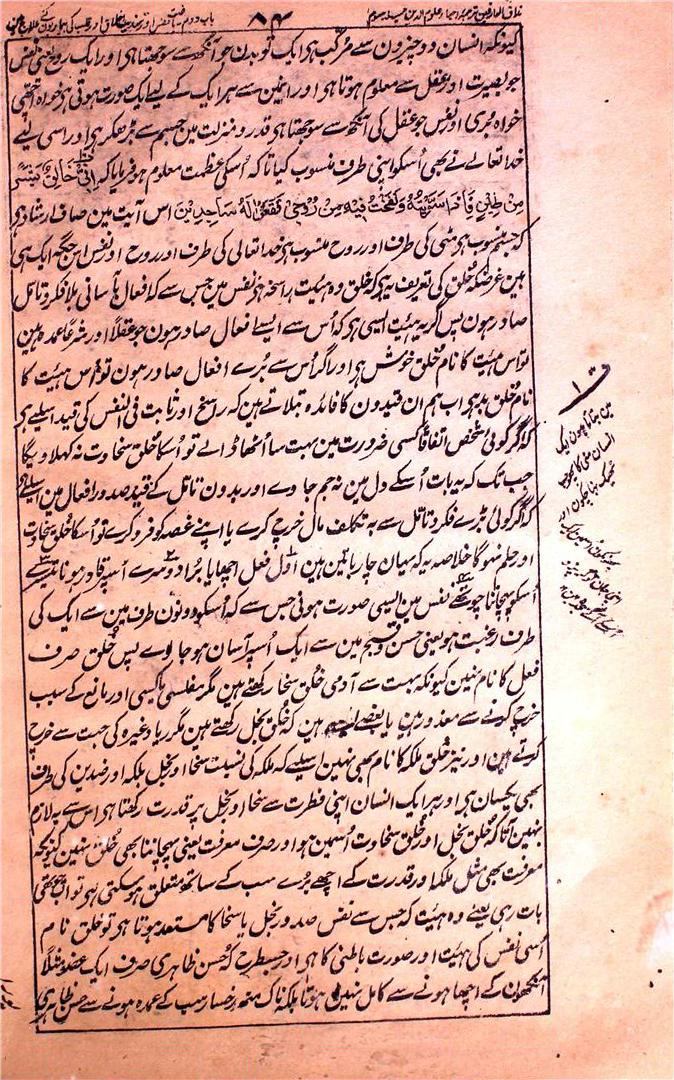 مذاق العارفین ترجمہ احیاء علوم الدین جلد سوم
۸۴
باب دوم
کیونکہ انسان دو چیزون سے مرکب ہی ایک تو بدن جو آنکھ سے سوجھتا ہی اور ایک روح یعنی نفس
جو بصیرت اور عقل سے معلوم ہوتا ہی اور انمین سے ہر ایک کے لیے ایک صورت ہوتی ہی خواہ اچھی
خواہ بری اور نفس جو عقل کی آنکھ سے سوجھتا ہی قدر و منزلت مین جسم سے بڑھکر ہی اور اسی لیے
خدا تعالے نے بھی اسکو اپنی طرف منسوب کیا تاکہ اسکی عظمت معلوم ہو فرمایا کہ اِنِّی خَالِقٌ بَشَرًا
مِنْ طِیْنٍ فَاِذَا سَوَّیْتُهُ وَنَفَخْتُ فِیْهِ مِنْ رُوْحِیْ فَقَعُوْا لَهُ سَاجِدِیْنَ اس آیت مین صاف ارشاد ہی
کہ جسم منسوب ہی مٹی کی طرف اور روح منسوب ہی خدا تعالی کی طرف اور روح اور نفس اس جگہ ایک ہی
ہین غرضکہ خلق کی تعریف یہ ہی کہ خلق وہ ہیئت راسخہ ہی نفس مین جس سے کہ افعال بآسانی بلا فکر و تامل
صادر ہون پس اگر یہ ہیئت ایسی ہی کہ اُس سے ایسے افعال صادر ہون جو عقلاً اور شرعاً عمدہ ہین
تو اس ہیئت کا نام خلق خوش ہی اور اگر اُس سے برے افعال صادر ہون تو اس ہیئت کا
نام خلق بد ہی اب ہم ان قیدون کا فائدہ بتلاتے ہین کہ راسخ اور ثابت فی النفس کی قید اسلیے ہی
کہ اگر کوئی شخص اتفاقاً کسی ضرورت مین بہت سا اٹھا ڈالے تو اسکا خلق سخاوت نہ کہلاویگا
جب تک کہ یہ بات اُسکے دل مین نہ جم جاوے اور بدون تامل کے قید صدور افعال مین اسلیے ہی
کہ اگر کوئی بڑے فکر و تامل سے بہ تکلف مال خرچ کرے یا اپنے غصہ کو فرو کرے تو اسکا خلق سخاوت
اور حلم نہو گا خلاصہ یہ کہ یہان چار باتین ہین اول فعل اچھا یا برا دوسرے اُسپر قادر ہونا تیسرے
اُسکو پہچاننا چوتھے نفس مین ایسی صورت ہونی جس سے کہ اُسکو دونون طرف مین سے ایک کی
طرف رغبت ہو یعنی حسن و قبیح مین سے ایک اُسپر آسان ہو جاوے پس خلق صرف
فعل کا نام نہین کیونکہ بہت سے آدمی خلق سخا رکھتے ہین مگر مفلسی یا کسی اور مانع کے سبب
خرچ کرنے سے معذور ہین یا بعضے ایسے ہین کہ خلق بخل رکھتے ہین مگر ریا وغیرہ کی جہت سے خرچ
کرتے ہین اور نیز خلق ملکہ کا نام بھی نہین اسلیے کہ ملکہ کی نسبت سخا اور بخل بلکہ اور ضدین کی طرف
بھی یکسان ہی اور ہر ایک انسان اپنی فطرت سے سخا اور بخل پر قدرت رکھتا ہی اس سے یہ لازم
نہین آتا کہ خلق بخل اور خلق سخاوت اُسمین ہو اور صرف معرفت یعنی پہچاننا بھی خلق نہین کیونکہ
معرفت بھی مثل ملکہ اور قدرت کے اچھے برے سب کے ساتھ متعلق ہو سکتی ہی تو اب چوتھی
بات رہی یعنے وہ ہیئت کہ جس سے نفس صدور بخل یا سخا کا مستعد ہوتا ہی تو خلق نام
اُسی نفس کی ہیئت اور صورت باطنی کا ہی اور جسطرح کہ حسن ظاہری صرف ایک عضو مثلاً
آنکھون کے اچھا ہونے سے کامل نہین ہوتا بلکہ ناک منھ رخسار سب کے عمدہ ہونے سے حسن ظاہری
مین بناتا ہون ایک
انسان مٹی کا پھر جب
ٹھیک بنا چکون اور